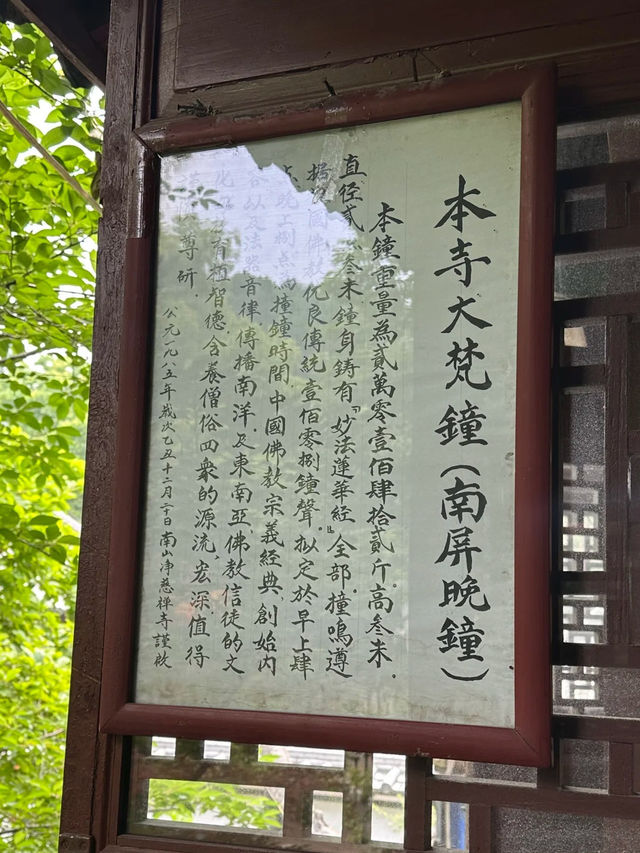 本寺大梵鐘(南屏晚鐘)
本鐘重量為貳萬零壹佰肆拾貳斤。高叁米.
直径貳.叁米鐘身鋳有『妙法蓮華經』全部.撞鳴遵
據我國佛教优良傳統壹佰零捌鐘聲.拟定於早上肆
点晚上捌点為撞鐘時間中國佛教宗義經典,創始内
容以及法器音律傳播南洋及東南亚佛教信徒的文
化 有恒智德,含養僧俗四衆的源流,宏深值得
尊研.
公元一九八五年歲次乙丑十二月二十日南山净慈禅寺謹啟